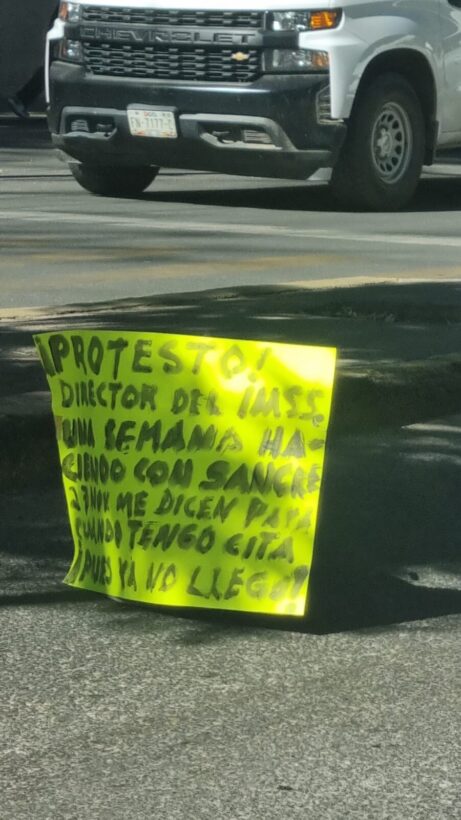 CHEVROLET
FN-7177-
¡PROTESTO!
DIRECTOR DEL IMSS.
UNA SEMANA HA-
CIENDO CON SANGRE
ME DICEN PA
CUANDO TENGO CITA
¡PUES YA NO LLEGO!